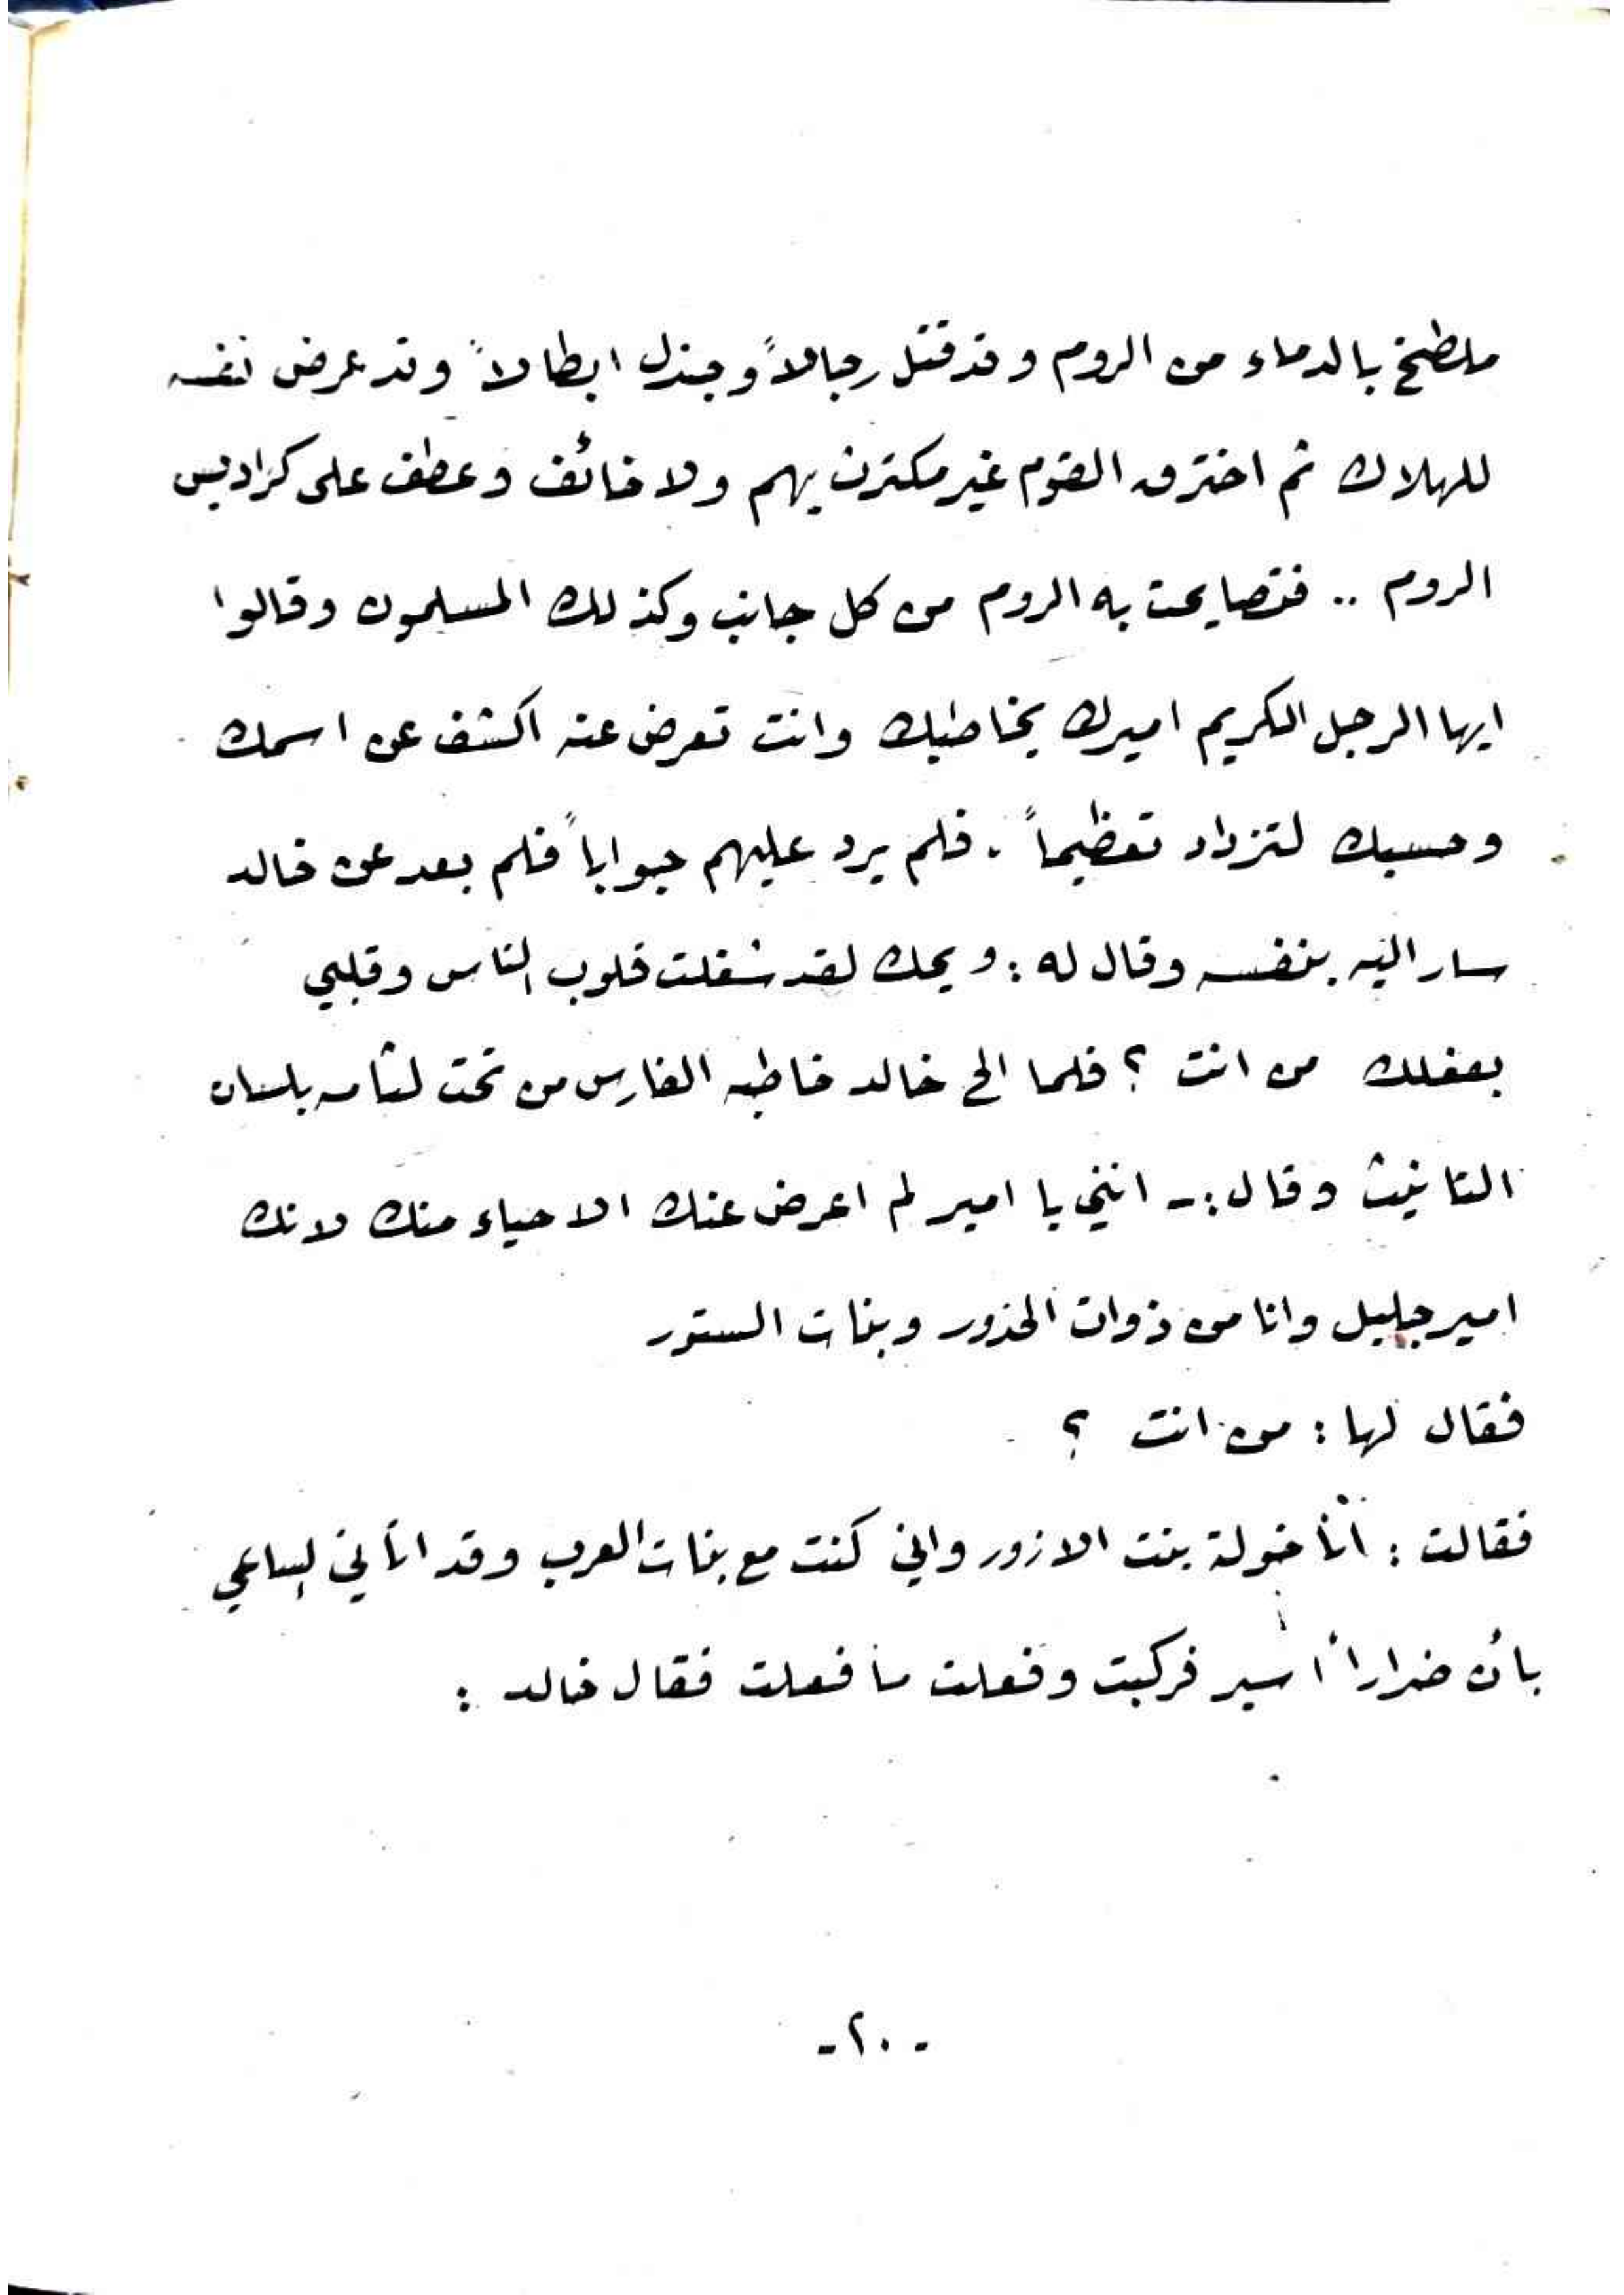 ملطخ بالدماء من الروم وقد قتل رجالاً وجندل ابطالاً وقد عرض نفسه
للهلاك ثم اخترق القوم غير مكترث بهم ولا خائف وعطف على كراديس
الروم .. فتصايحت به الروم من كل جانب وكذلك المسلمون وقالوا
ايها الرجل الكريم اميرك يخاطبك وانت تعرض عنه اكشف عن اسمك
وحسبك لتزداد تعظيماً . فلم يرد عليهم جواباً فلم بعد عن خالد
سار اليه بنفسه وقال له : ويحك لقد شغلت قلوب الناس وقلبي
بفعلك من انت ؟ فلما الح خالد خاطبه الفارس من تحت لثامه بلسان
التانيث وقال :- انني يا امير لم اعرض عنك الا حياء منك لانك
امير جليل وانا من ذوات الخدور وبنات الستور
فقال لها : من انت ؟
فقالت : انا خولة بنت الازور واني كنت مع بنات العرب وقد اتاني الساعي
بأن ضراراً أسير فركبت وفعلت ما فعلت فقال خالد :
- ٢٠ -